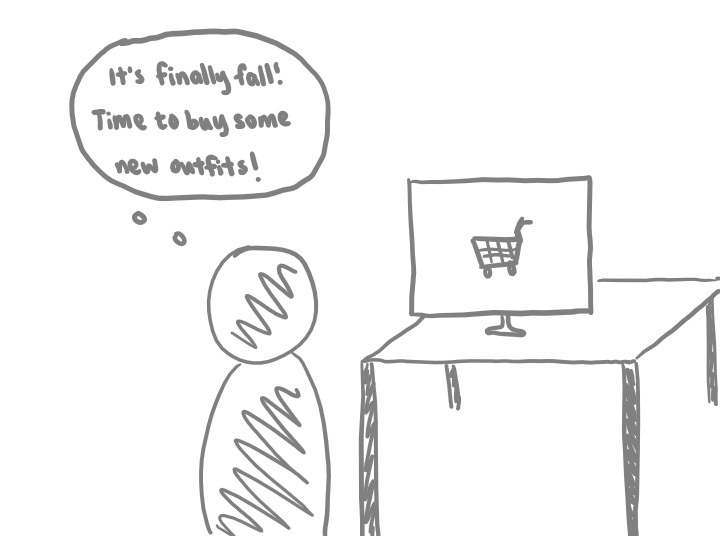 It's finally fall!
Time to buy some
new outfits!